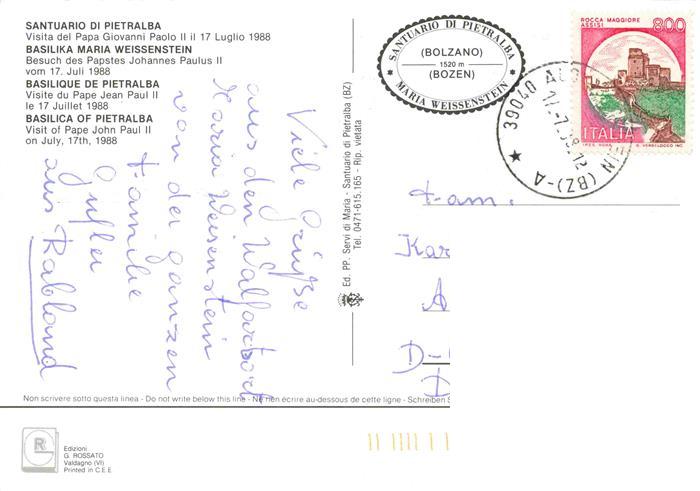 SANTUARIO DI PIETRALBA
Visita del Papa Giovanni Paolo II il 17 Luglio 1988
BASILIKA MARIA WEISSENSTEIN
Besuch des Papstes Johannes Paulus II
vom 17. Juli 1988
BASILIQUE DE PIETRALBA
Visite du Pape Jean Paul II
le 17 Juillet 1988
BASILICA OF PIETRALBA
Visit of Pape John Paul II
on July, 17th, 1988
Viele Grüße
aus den Wallfartsort
Maria Weisenstein
von der ganzen
Familie
aus Rabland
Ed. PP. Servi di Maria - Santuario di Pietralba (BZ)
Tel. 0471-615.165 - Rip. vietata
SANTUARIO DI PIETRALBA
(BOLZANO)
1520 m
(BOZEN)
MARIA WEISSENSTEIN
ROCCA MAGGIORE
ASSISI
800
ITALIA
39040
(BZ)-A
Fam.
Kar
A
D-
D
Non scrivere sotto questa linea - Do not write below this line - Ne rien écrire au-dessous de cette ligne - Schreiben S
R
Edizioni
G. ROSSATO
Valdagno (VI)
Printed in C.E.E.